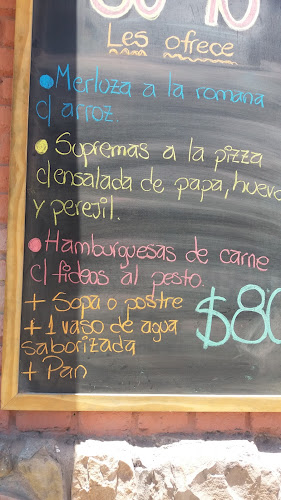 Les ofrece
• Merluza a la romana
c/ arroz.
• Supremas a la pizza
c/ensalada de papa, huevo
y perejil.
• Hamburguesas de carne
c/ fideos al pesto.
+ Sopa o postre
+ 1 vaso de agua
saborizada
+ Pan
$80